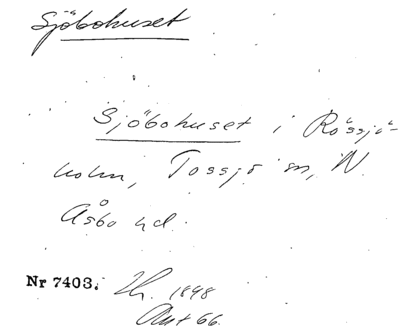 Sjöbohuset
Sjöbohuset i Rössjö-
holm, Tossjö sn, N.
Åsbo hd.
Nr 7403. Th. 1898
Ant 66.